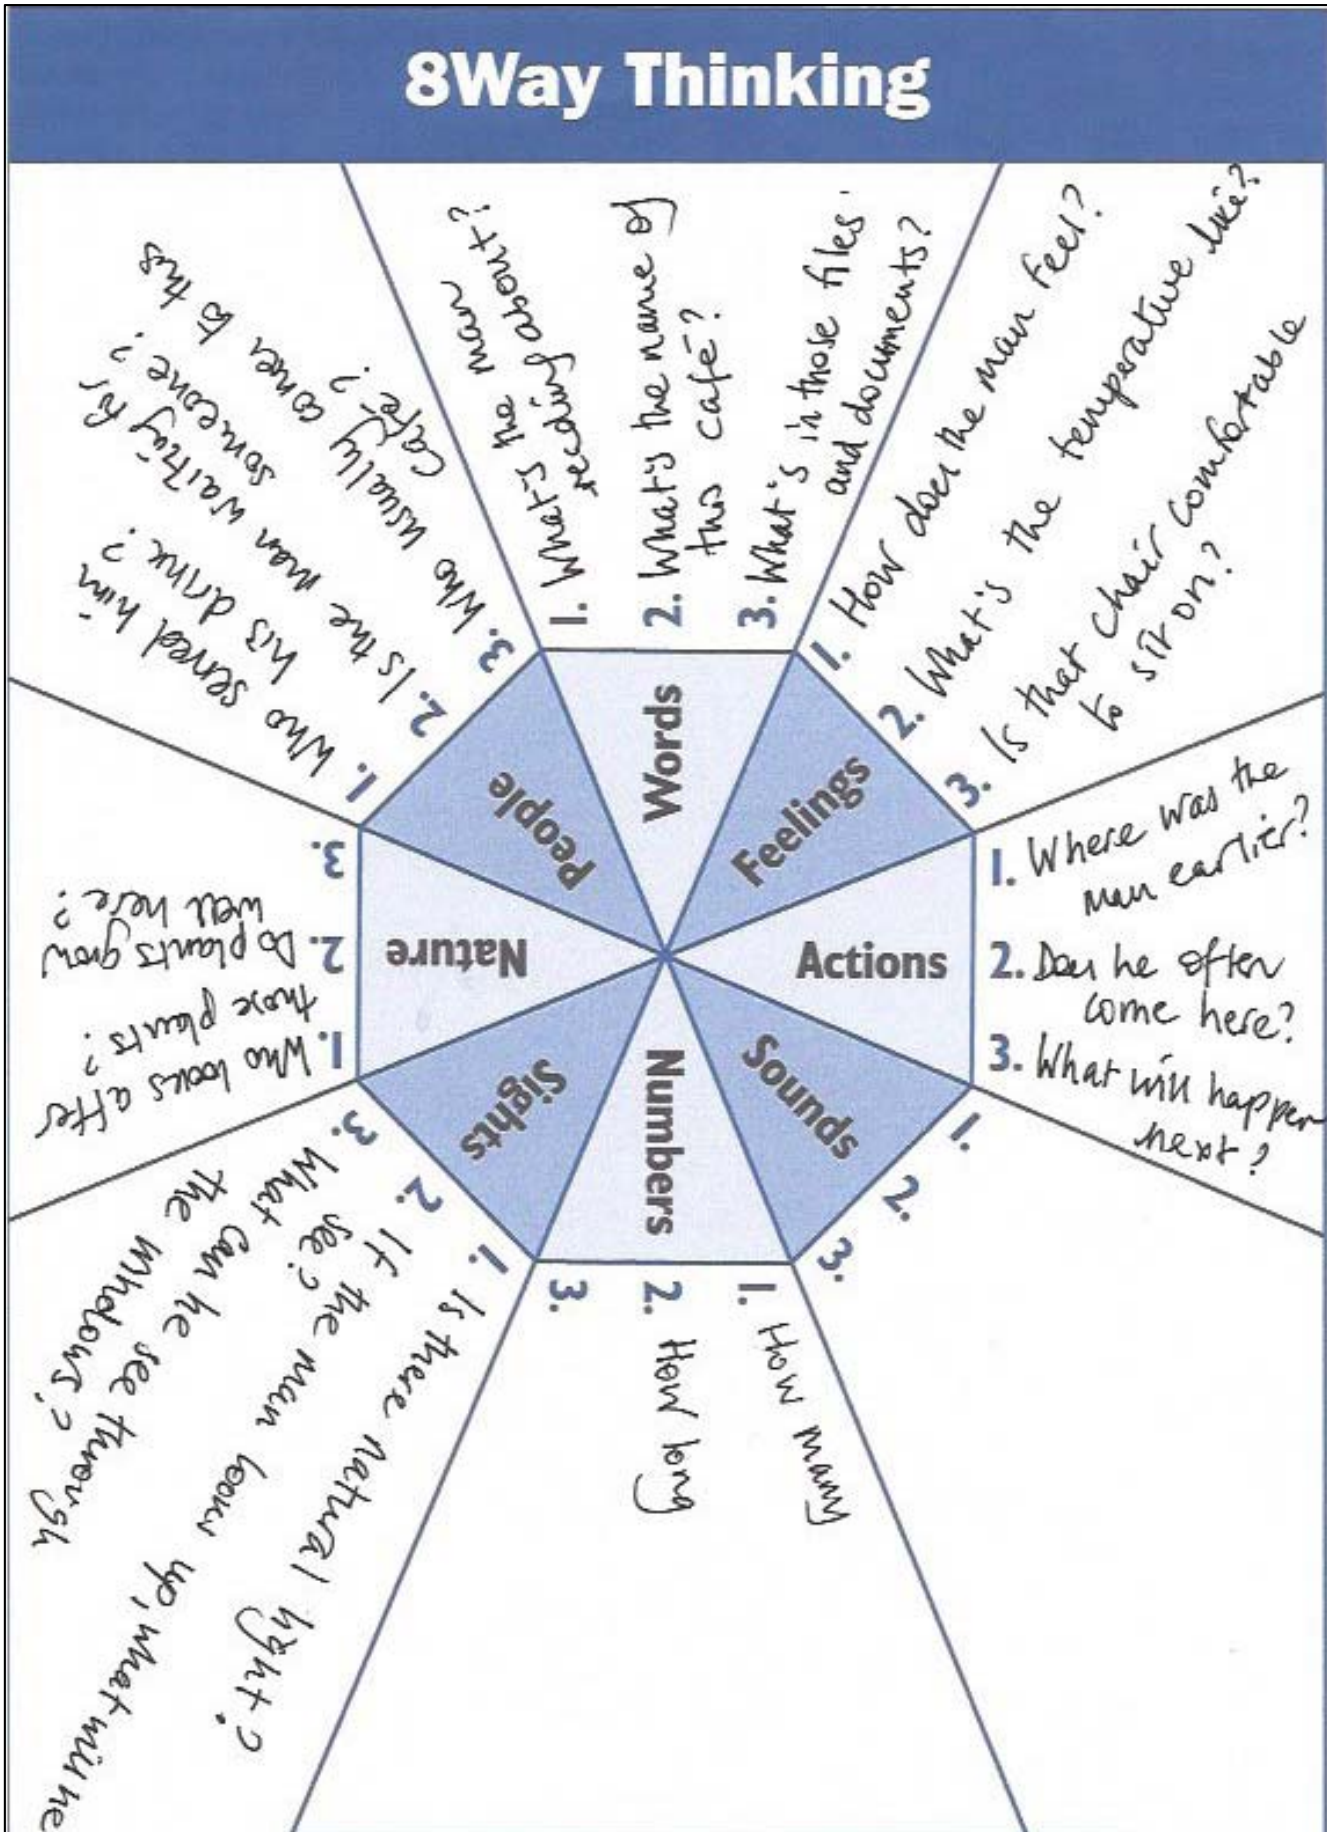 8Way Thinking
Words
1. What's the man
reading about?
2. What's the name of
this café?
3. What's in those files
and documents?
Feelings
1. How does the man feel?
2. What's the temperature like?
3. Is that chair comfortable
to sit on?
Actions
1. Where was the
man earlier?
2. Does he often
come here?
3. What will happen
next?
Sounds
1.
2.
3.
Numbers
1. How many
2. How long
3.
Sights
1. Is there natural light?
2. If the man looks up, what will he
see?
3. What can he see through
the windows?
Nature
1. Who looks after
those plants?
2. Do plants grow
well here?
3.
People
1. Who served him
his drink?
2. Is the man waiting for
someone?
3. Who usually comes to this
café?